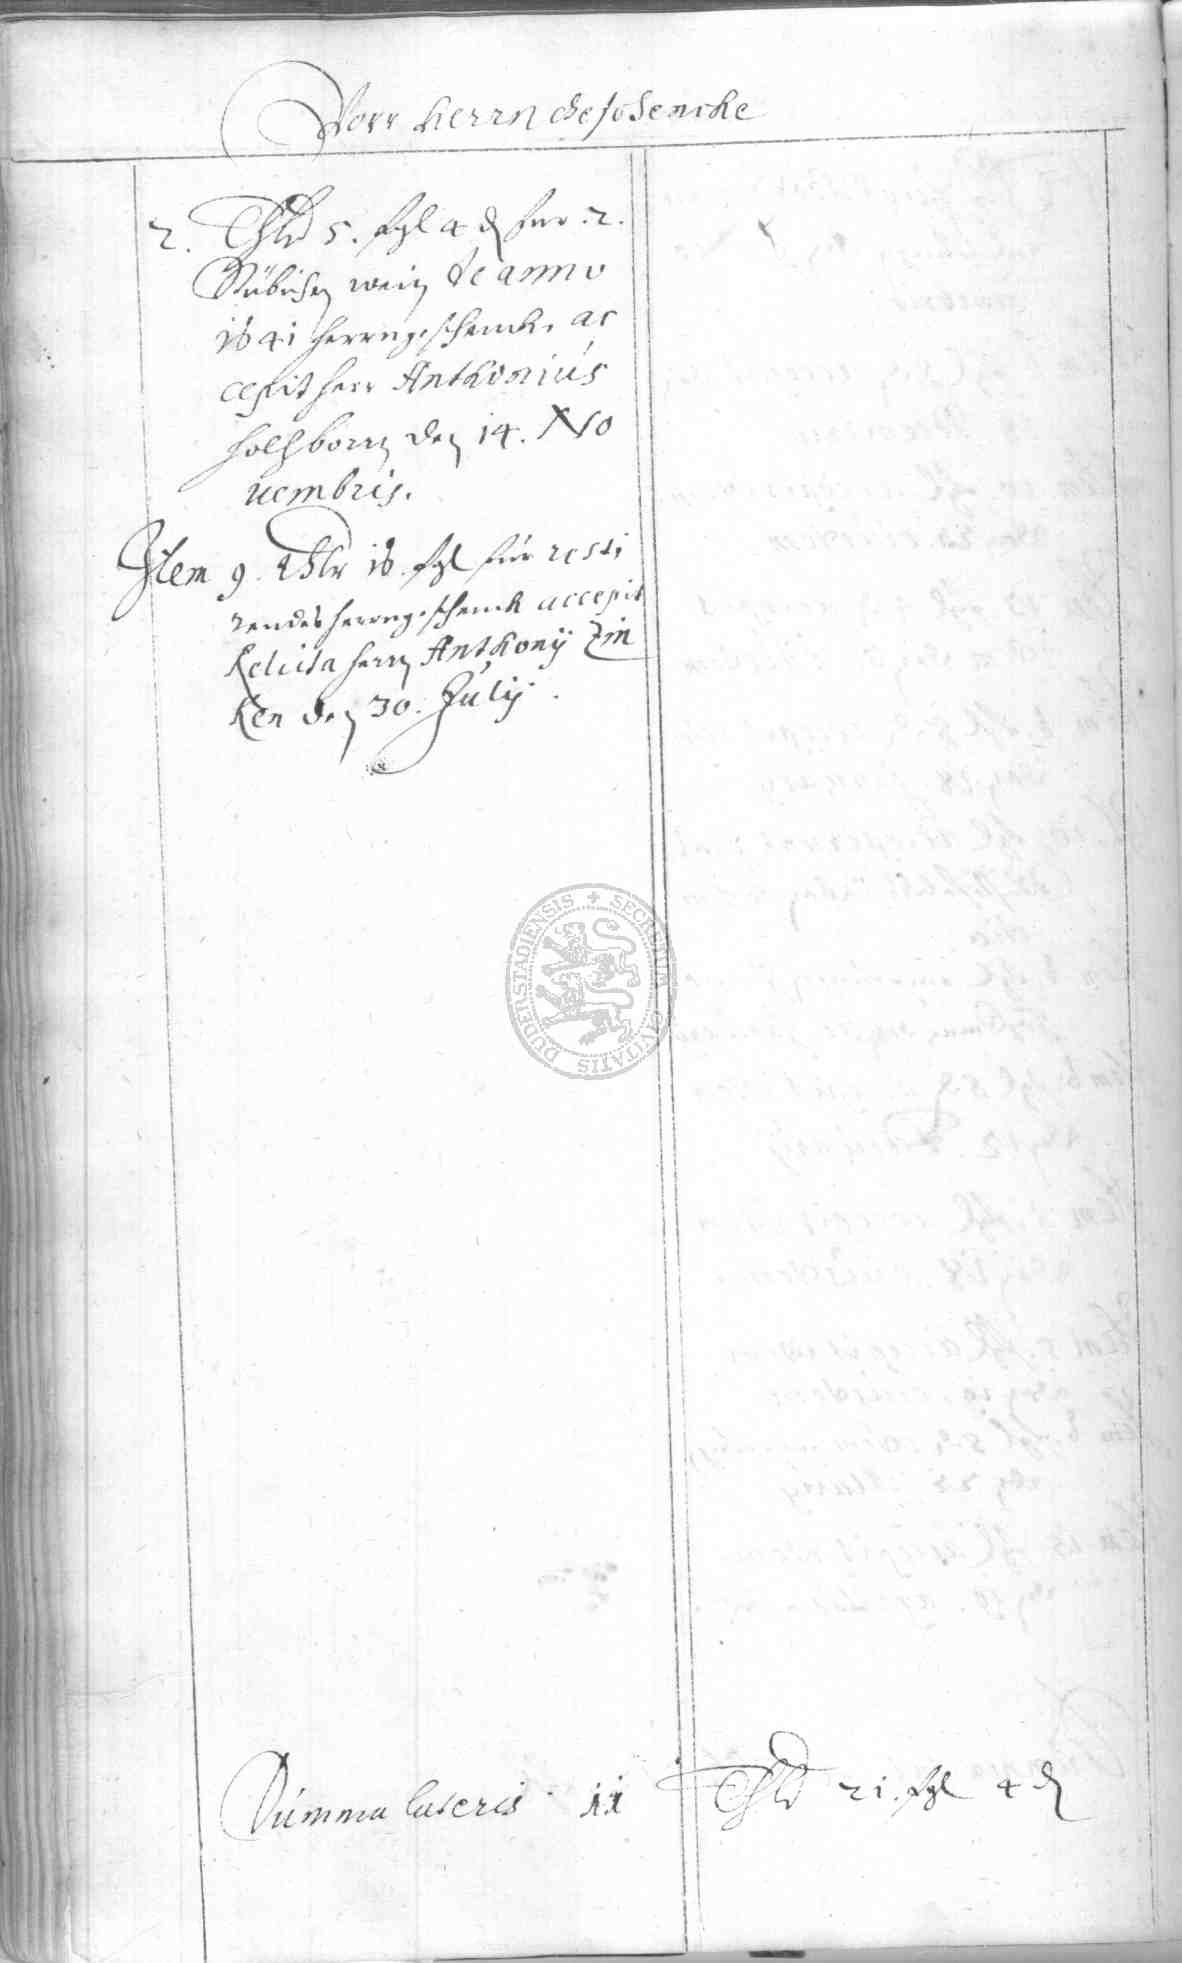 Vorr herrn Geschencke
2. Thlr 5. ßgl 4 ₰ fur .2.
Stübichen wein de anno
1641 herrngeschenck, ac
cepit herr Anthonius
Holhborn den 14. No
uembris.
Item 9. Thlr 16. ßgl für resti
rendes herrngeschenck accepit
Relicta herrn Anthonij Zin
ken den 30. Julij.
SECRETUM CIVITATIS DUDERSTADIENSIS
Summa lateris 11 Thlr 21. ßgl 4 ₰